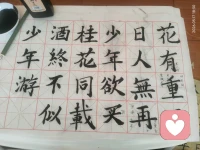 花有重
日人無再
少年欲买
桂花同載
酒終不似
少年游